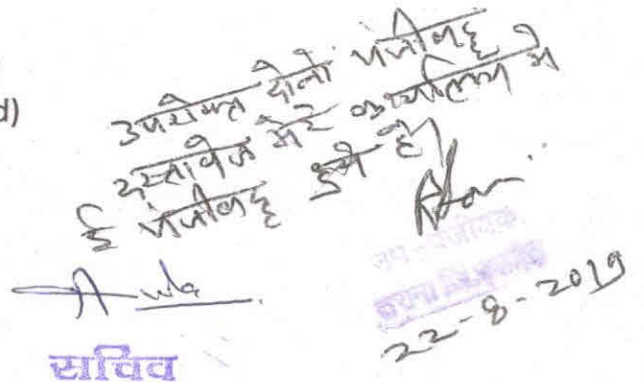 d)
उपरोक्त दोनो पंजीबद्ध
दस्तावेज मेरे कार्यालय मे
ई पंजीबद्ध हुये है।
उप-पंजीयक
22-8-2019
सचिव